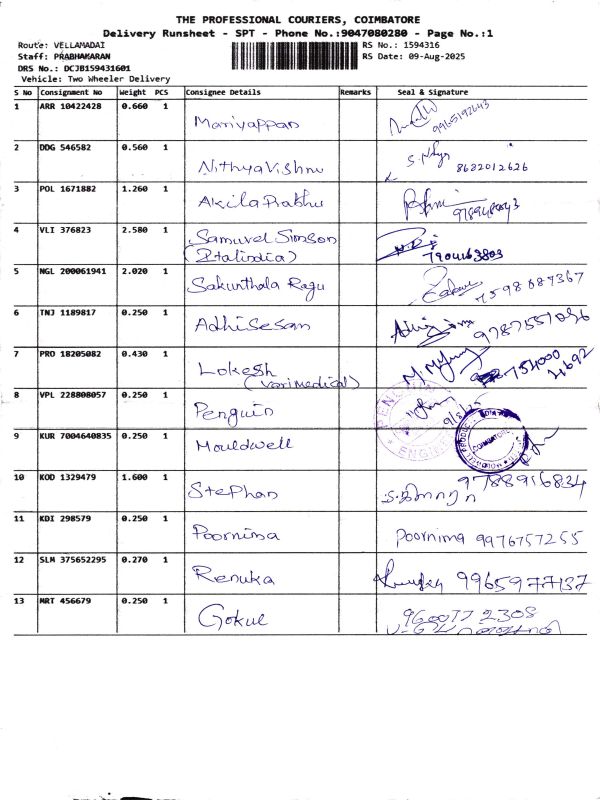 THE PROFESSIONAL COURIERS, COIMBATORE
Delivery Runsheet - SPT - Phone No.:9047080280 - Page No.:1
Route: VELLAMADAI
RS No.: 1594316
Staff: PRABHAKARAN
RS Date: 09-Aug-2025
DRS No.: DCJB159431601
Vehicle: Two Wheeler Delivery
S No Consignment No Weight PCS Consignee Details Remarks Seal & Signature
1 ARR 10422428 0.660 1 Mariyappan 9965192643
2 DDG 546582 0.560 1 NithyaVishnu 8682012626
3 POL 1671882 1.260 1 AkilaPrabhu
4 VLI 376823 2.580 1 Samuvel Simson
(Italindia) 7904463803
5 NGL 200061941 2.020 1 Sakunthala Ragu 7598684367
6 TNJ 1189817 0.250 1 Adhisesan 9787551096
7 PRO 18205082 0.430 1 Lokesh
(varimedical)
8 VPL 228808057 0.250 1 Penguin 9/8/25
9 KUR 7004640835 0.250 1 Mouldwell COIMBATORE
10 KOD 1329479 1.600 1 Stephan 9788916834
11 KDI 298579 0.250 1 Poornima Poornima 9976757255
12 SLM 375652295 0.270 1 Renuka 9965977137
13 MRT 456679 0.250 1 Gokul 960077 2308